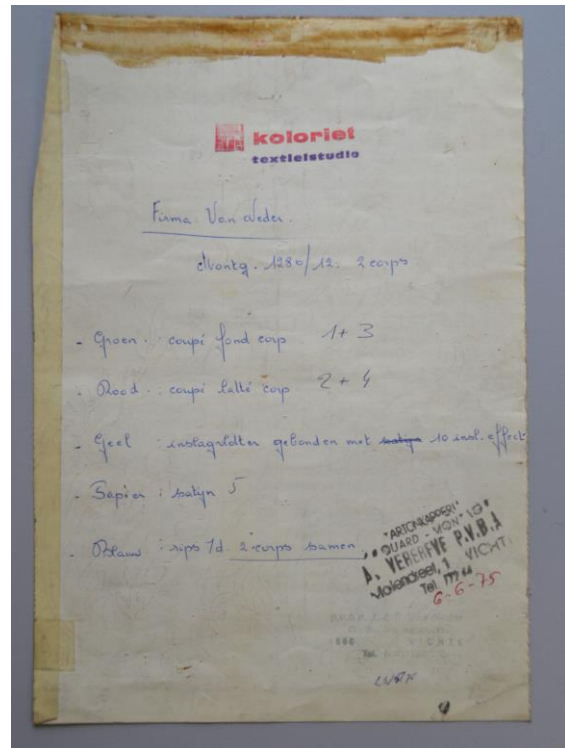 koloriet
textielstudio
Firma: Van Neder.
Montg. 1280/12. 2 corps
- Groen : coupé fond corp 1+3
- Rood : coupé latté corp 2+4
- Geel : inslagvlotten gebonden met satijn 10 insl. effect
- Papier : satijn 5
- Blauw : rips 1d. 2 corps samen,
"ARTONKAPPERIJ"
A. VEREFVE P.V.B.A
Molendreef, 1 VICHTE
Tel.
6-6-75
Tel.